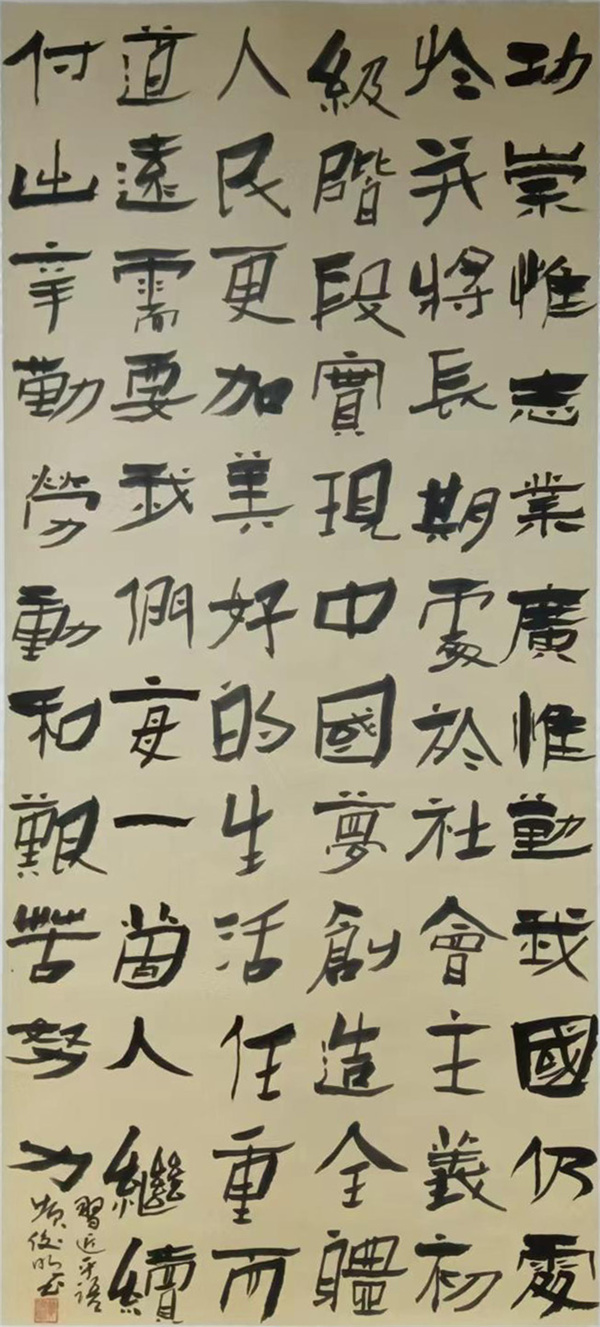 功崇惟志業廣惟勤我國仍處
於并將長期處於社會主義初
級階段實現中國夢創造全體
人民更加美好的生活任重而
道遠需要我們每一箇人繼續
付出辛勤勞動和艱苦努力
習近平語